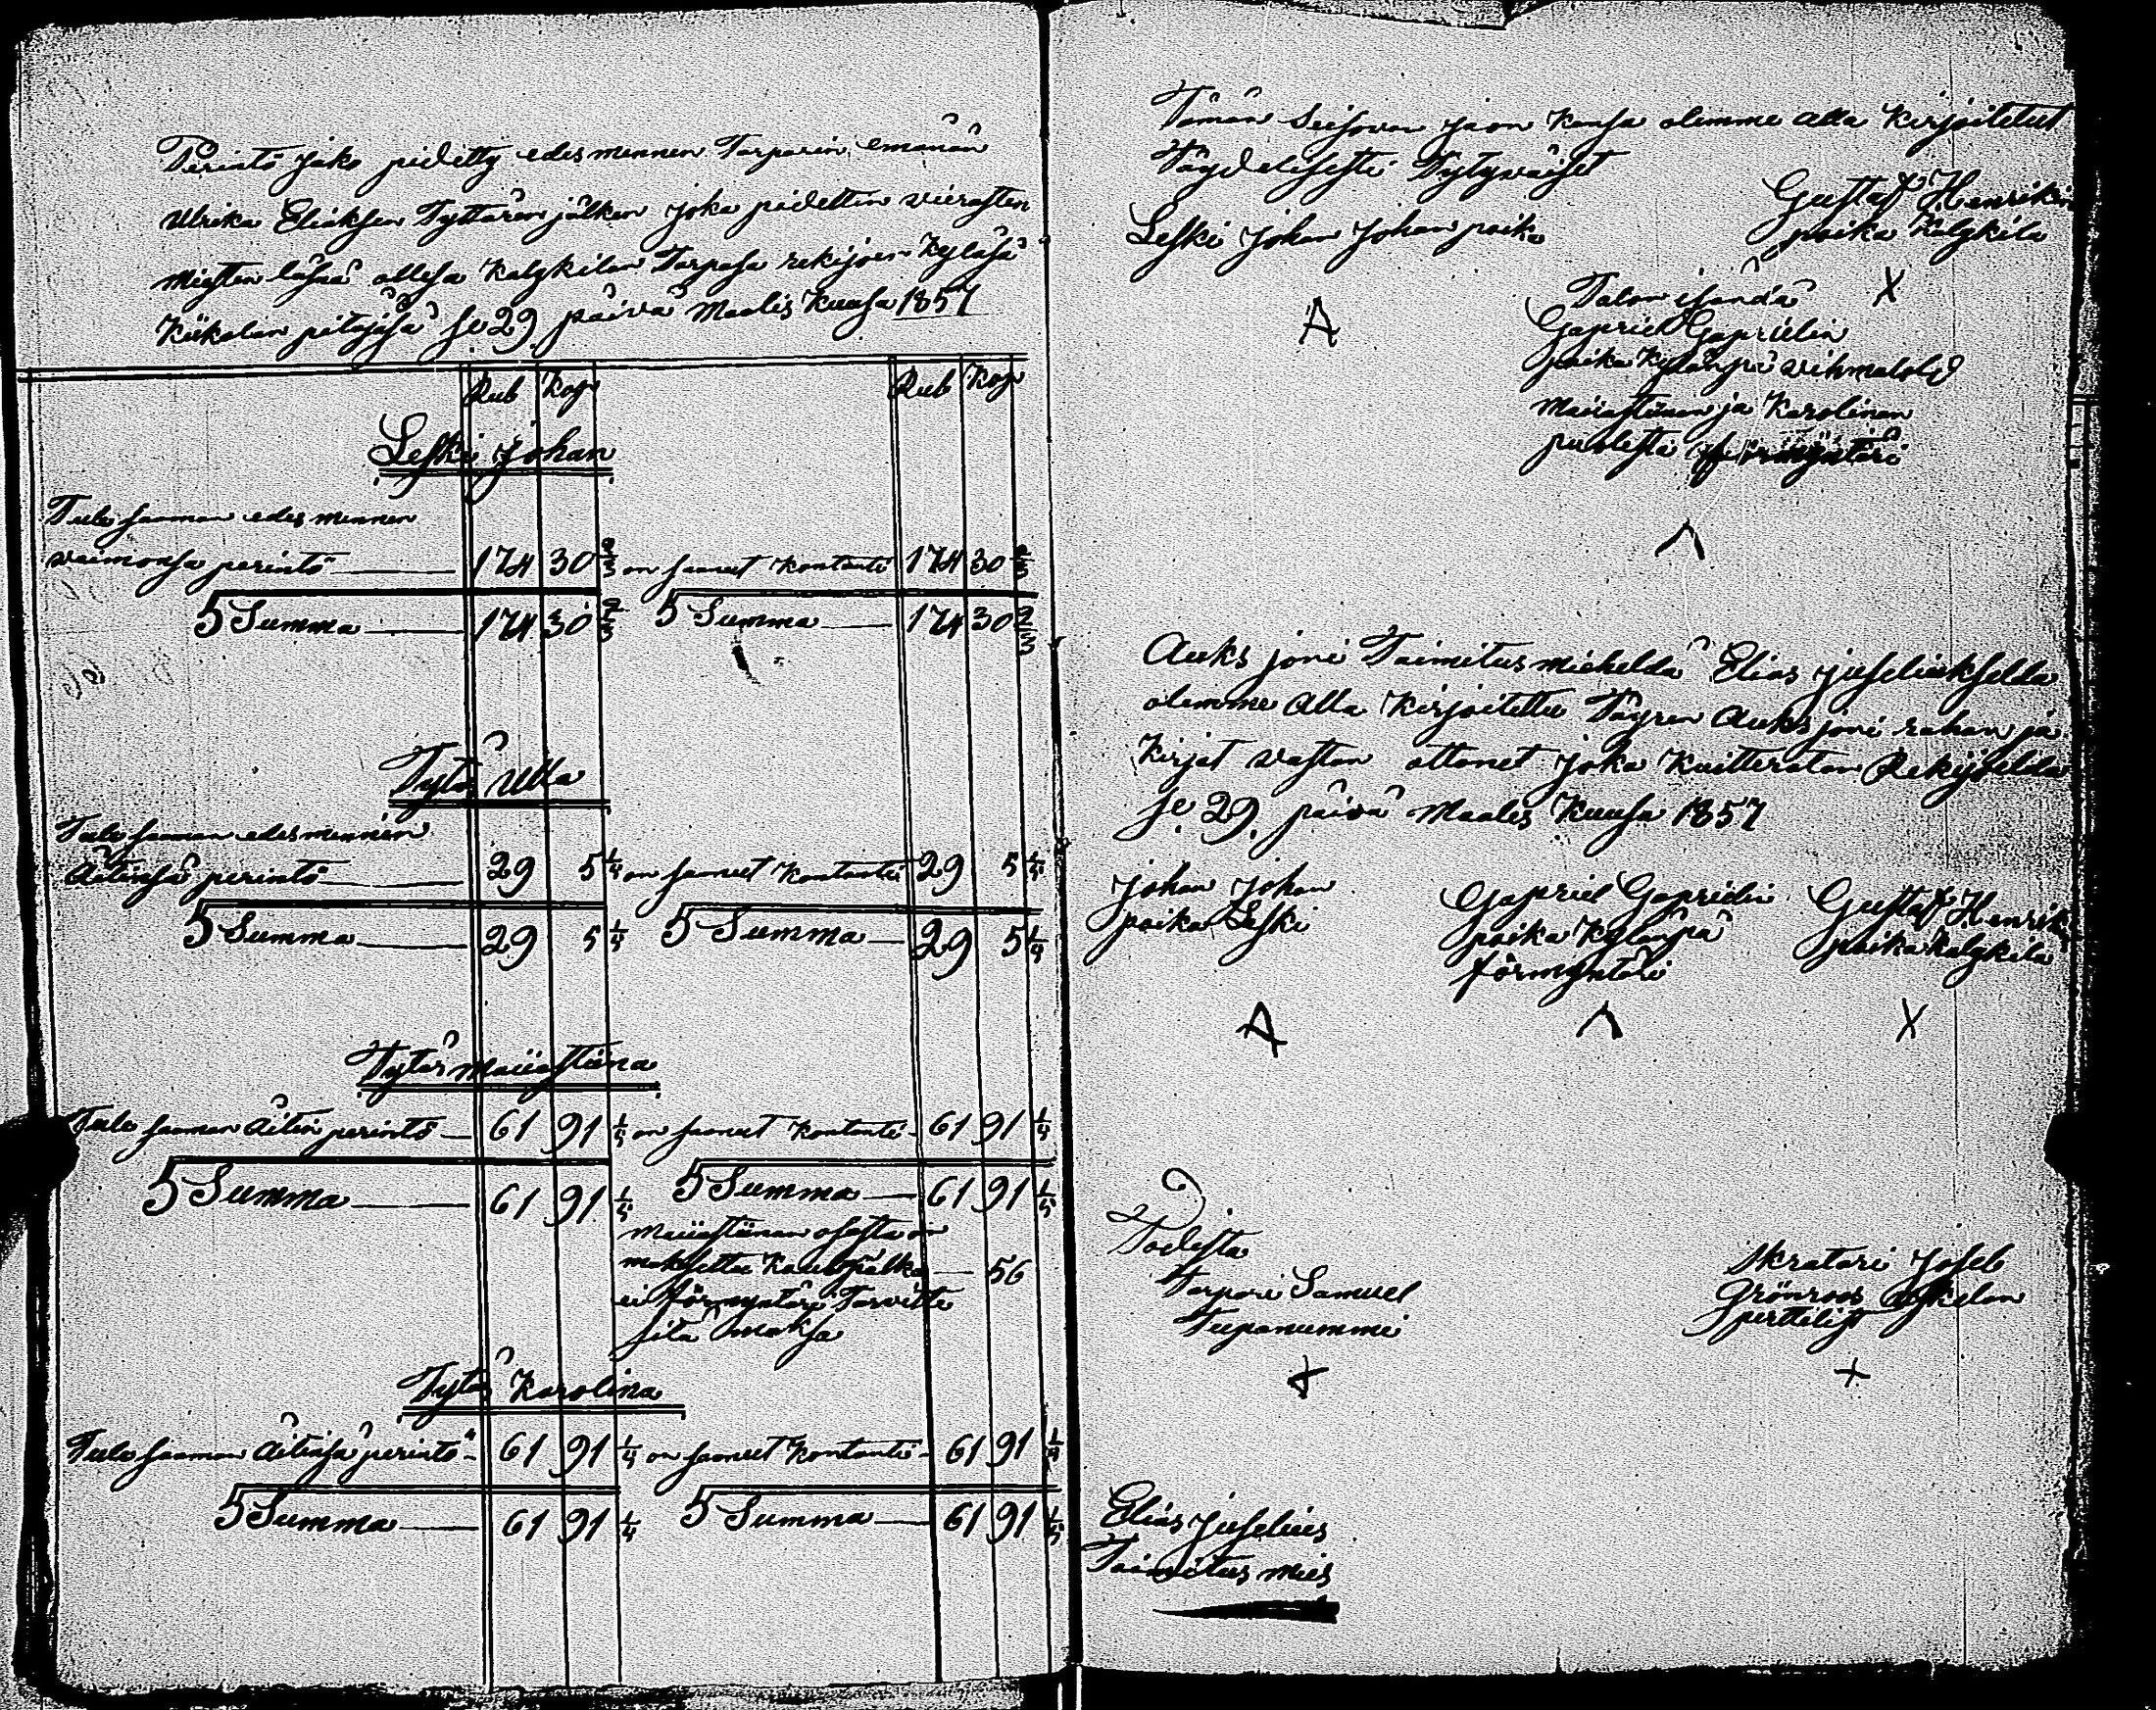 Perintö jako pidetty edesmennen Torparin emänän
Ulrika Eliaksen Tyttären jälken joka pidettin vierasten
miesten läsnä ollesa Kalykilan Torpasa rekijoen Kyläsä
Kiikalan pitäjäsä se 29. päivä Maalis Kuusa 1857
Rub Kop Rub Kop
Leski Johan
Tule saaman edesmennen
vaimonsa perintö 174 30 2/3 on saanut Kontanti 174 30 2/3
S Summa 174 30 2/3 S Summa 174 30 2/3
Tytär Ulla
Tule saaman edesmennen
Äitinsä perintö 29 5 1/4 on saanut Kontanti 29 5 1/4
S Summa 29 5 1/4 S Summa 29 5 1/4
Tytär Maiiastiina
Tule saaman Äitin perintö 61 91 1/4 on saanut Kontanti 61 91 1/4
S Summa 61 91 1/4 S Summa 61 91 1/4
Maiiastiinan osasta on
maksettu Kasvopalka 56
ei förmyntäri Tarvitte
sitä maksa
Tytär Karolina
Tule saaman Äitinsä perintö 61 91 1/4 on saanut Kontanti 61 91 1/4
S Summa 61 91 1/4 S Summa 61 91 1/4
Tämän seisovan jaon Kansa olemme alla Kirjoitetut
Täydelisesti Tytyväiset
Leski Johan Johan poika
A
Gustaf Henrikin
poika Kalykila
X
Talon isändä
Gapriel Gaprielin
poika Kylänpä vihmalold
Maiiastiinan ja Karolinan
puolesta förmyntäri
Auks joni Toimitus miehelda Elias juselinkselda
olemme Alla Kirjoitettu Täyren Auks joni rahan ja
Kirjat vastan ottanet joka Kuitteratan Rekijoelda
se 29. päivä Maales Kuusa 1857
Johan Johan
poika Leski
A
Gapriel Gaprielin
poika Kylänpä
förmyntäri
Gustaf Henrik
poika Kalykila
X
Todista
Torpari Samuel
Tupanummi
Skratari Joseb
Grönroos
perttilist
+
Elias juselius
Toimitus mies